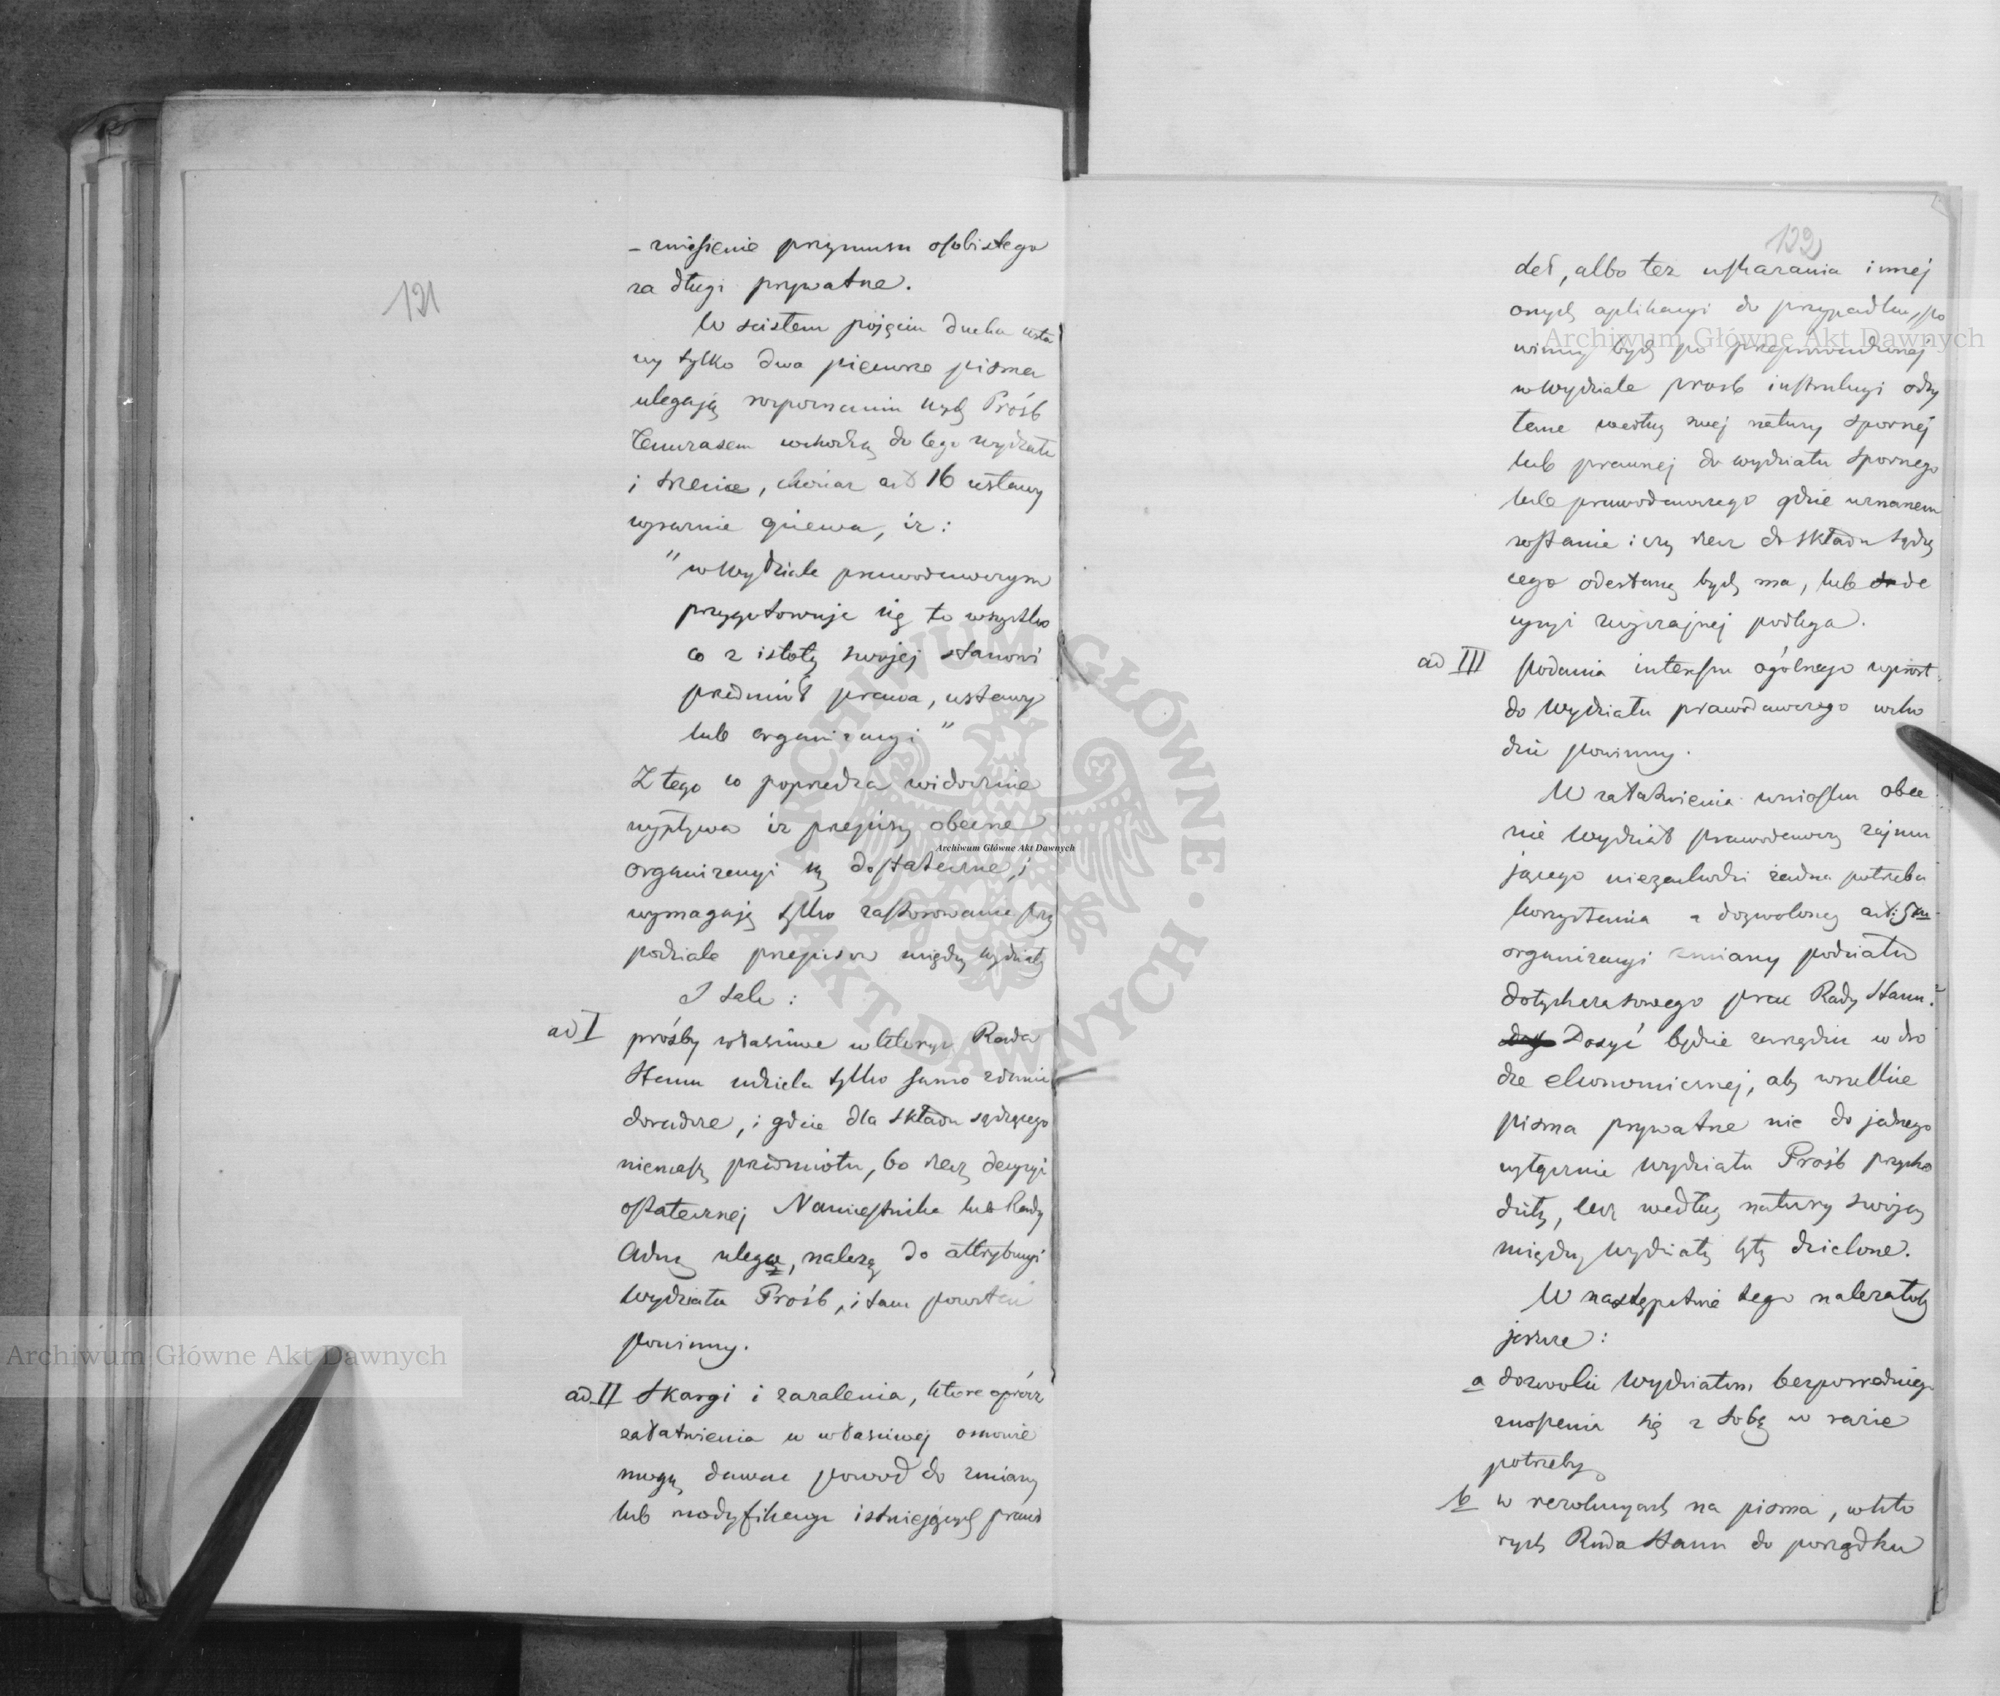 121
– zniesienie przymusu osobistego
za długi prywatne.
W scisłem pojęciu ducha usta
wy tylko dwa pierwsze pisma
ulegają rozpoznaniu Wydz Prośb
Tymczasem wchodzą do tego wydziału
i trzecie, chociaz art 16 ustawy
wyraznie opiewa, iz:
"w Wydziale prawodawczym
przygotowuje się to wszystko
co z istoty swojej stanowi
przedmiót prawa, ustawy
lub organizacyi"
Z tego co poprzedza widocznie
wypływa iz przepisy obecne
organizacyi są dostateczne, i
wymagają tylko zastosowania przy
podziale przepisow między wydziały
I tak:
ad I prośby właściwe w ktorych Rada
Stanu udziela tylko samo zdanie
doradcze, i gdzie dla składu sądzącego
niemasz przedmiotu, bo rzecz decyzyi
ostatecznej Namiestnika lub Rady
Admą ulega, nalezą do attrybucyi
Wydziału Prośb, i tam powstać
powinny.
ad II Skargi i zazalenia, ktore oprócz
załatwienia w właściwej osnowie
mogą dawac powod do zmiany
lub modyfikacyi istniejących praw
122
deł, albo tez wskazania innej
onych aplikacyi do przypadku, po
winny bydz po przeprowadzonej
w Wydziale prosb instrukcyi odsy
łane według swej natury spornej
lub prawnej do wydziału spornego
lub prawodawczego gdzie uznanem
zostanie i czy rzecz do składu sądzą
cego odesłaną bydz ma, lub do de
cyzyi zwyczajnej podlega.
ad III Podania interesu ogólnego wprost
do Wydziału prawodawczego wcho
dzic powinny.
W załatwienia wniosku obec
nie Wydział prawodawczy zajmu
jącego niezachodzi żadna potrzeba
korzystania z dozwolonej art: 5ym
organizacyi zmiany podziału
dotychczasowego prac Rady Stanu.
Dosyć będzie zarządzic w dro
dze ekonomicznej, aby wszelkie
pisma prywatne nie do jednego
wyłącznie Wydziału Prośb przycho
dziły, lecz według natury swojej
między Wydziały były dzielone.
W następstwie tego nalezałoby
jeszcze:
a dozwolic Wydziałom bezposredniego
znoszenia się z sobą w razie
potrzeby
b w rezolucyach na pisma, w kto
rych Rada Stanu do porządku
Archiwum Główne Akt Dawnych